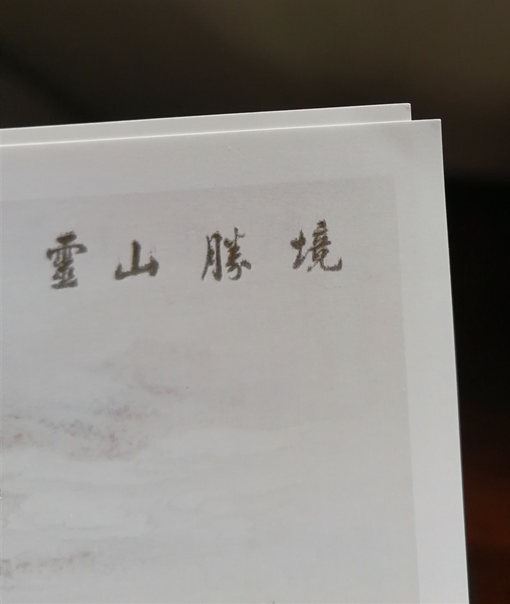 靈山勝境